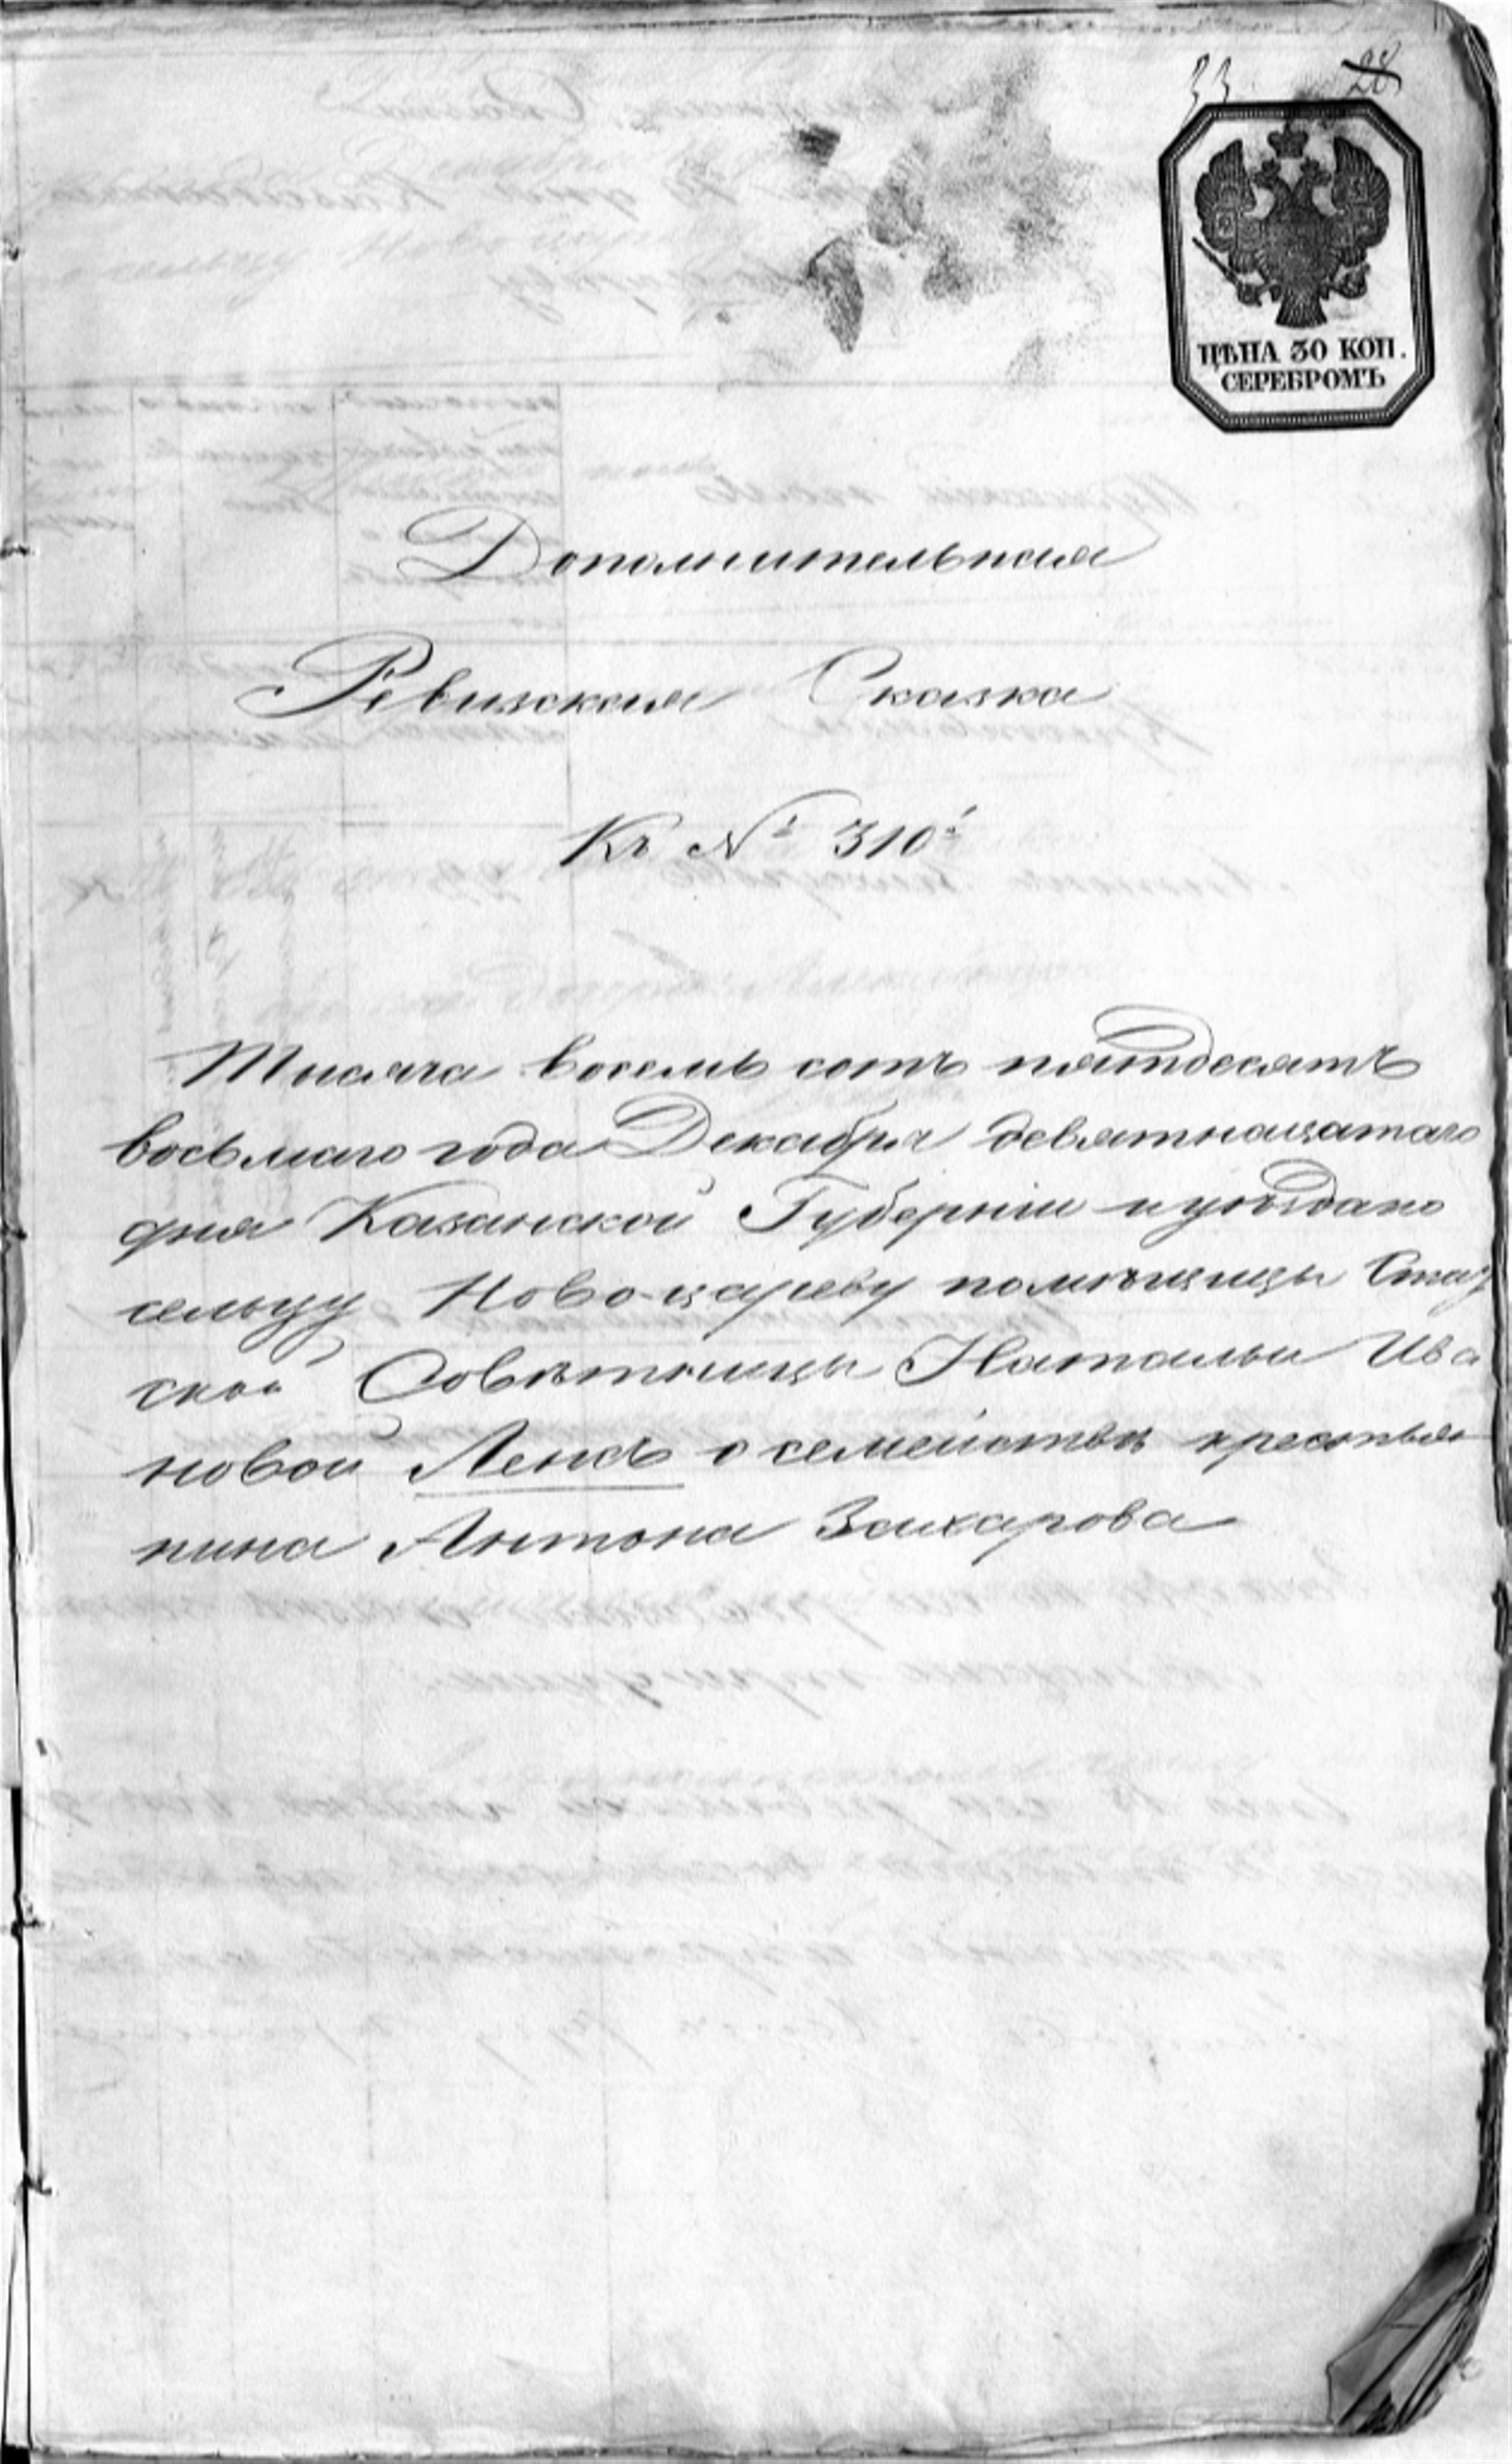 33 28
ЦѢНА 30 КОП.
СЕРЕБРОМЪ
Дополнительная
Ревизская Сказка
Къ № 310й
Тысяча восемь сотъ пятьдесятъ
восьмаго года Декабря девятнацатаго
дня Казанской Губерніи и уѣзда по
сельцу Ново-цареву помѣщицы Стат
ской Совѣтницы Натальи Ива
новой Ленсъ о семействѣ крестья
нина Антона Захарова